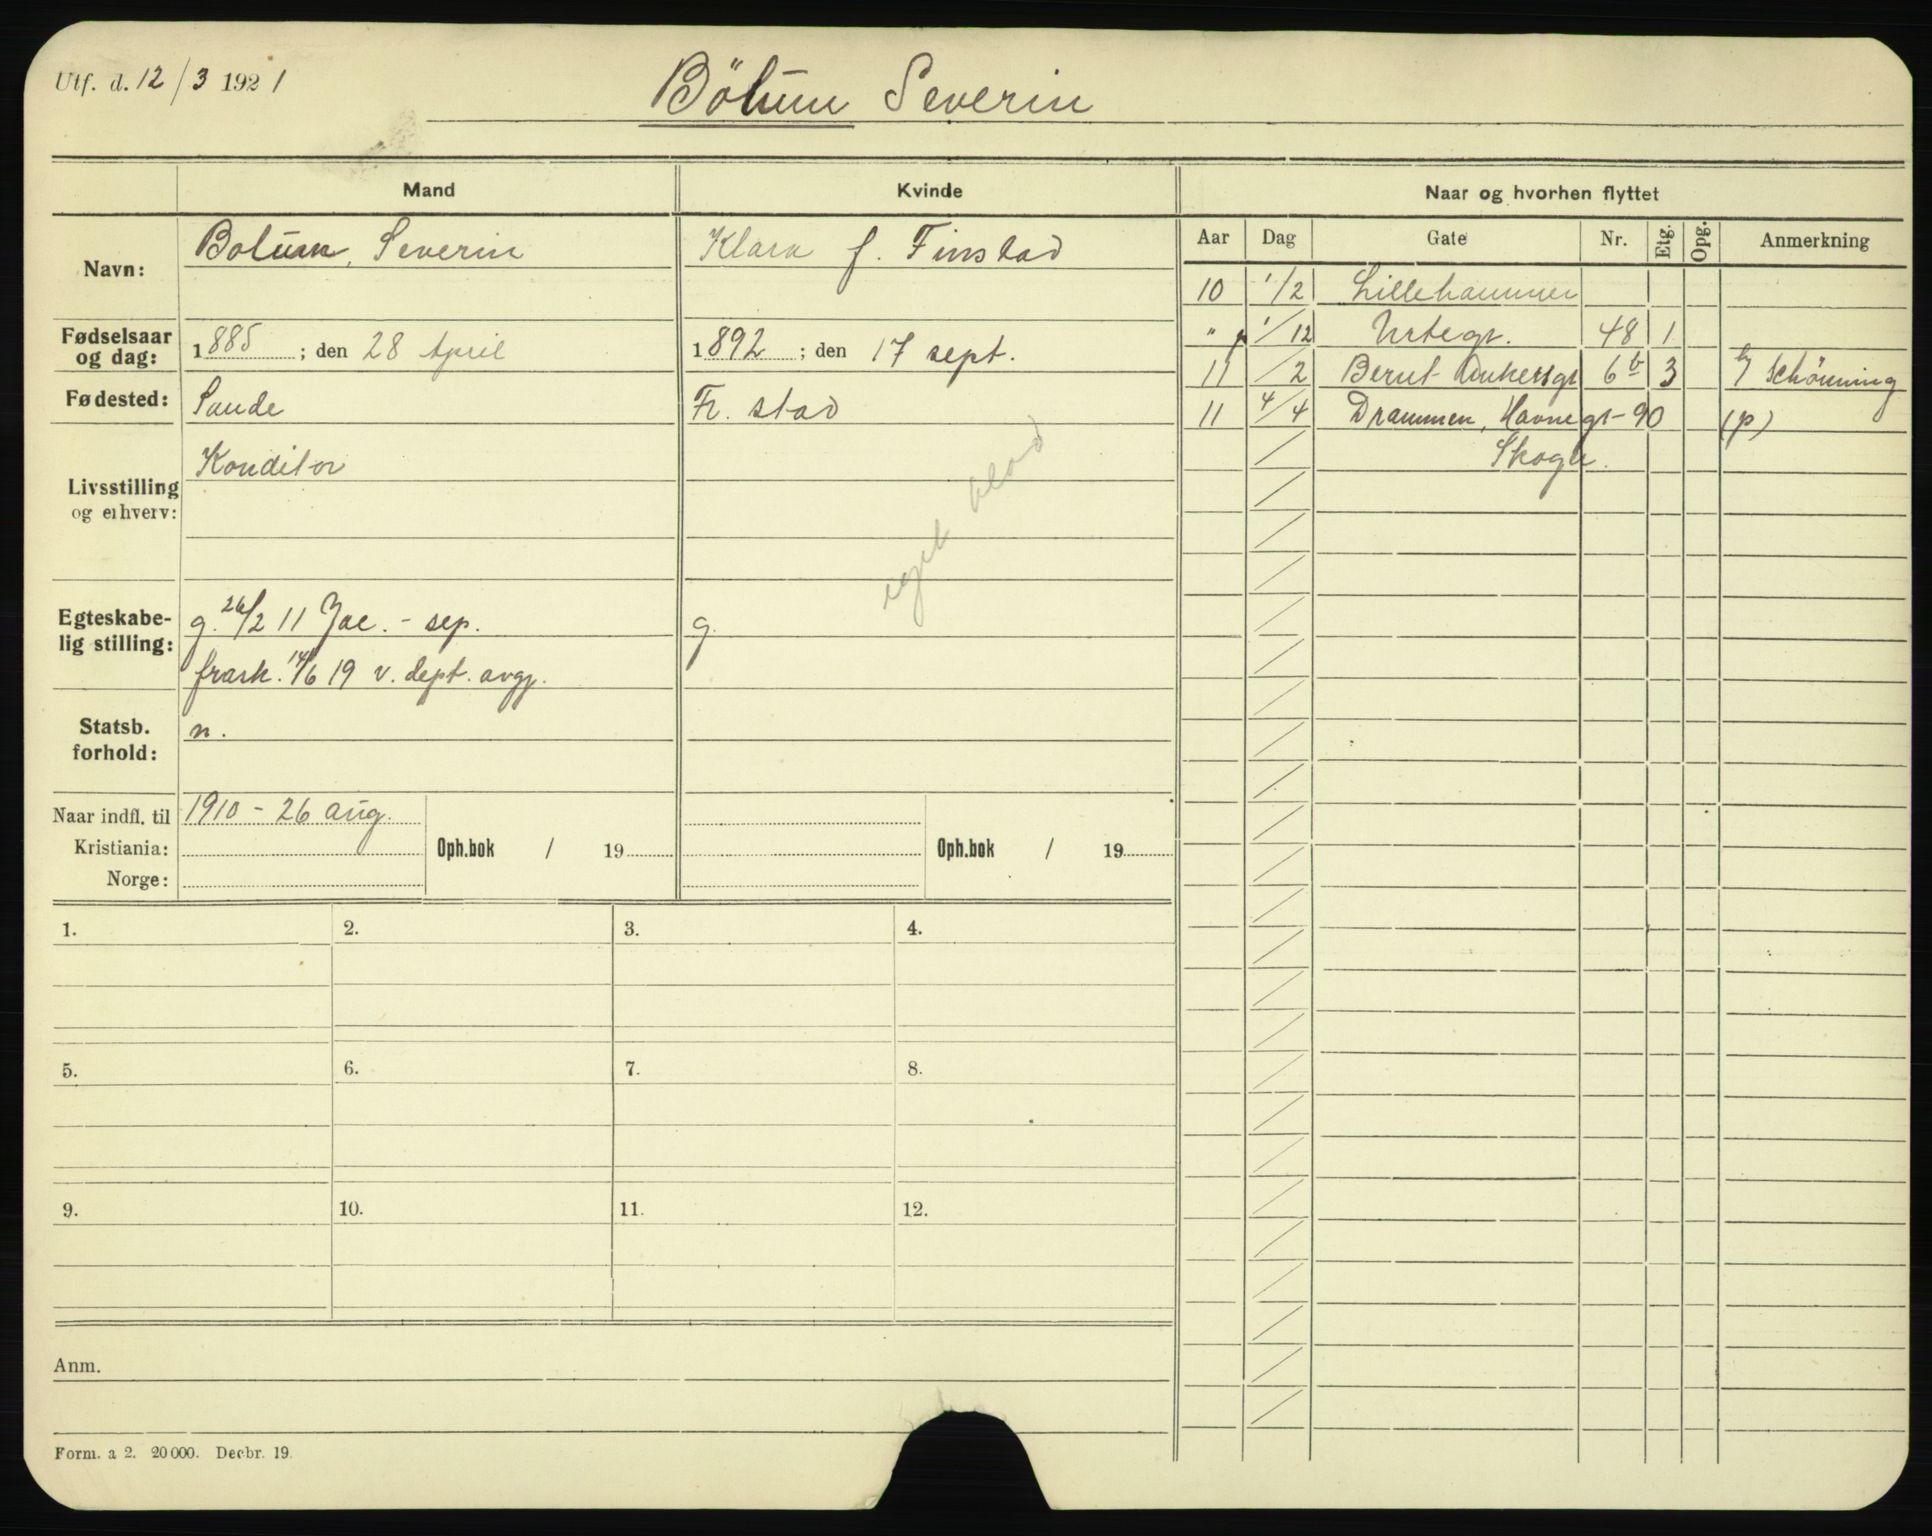 Utf. d. 12/3 1921
Bölum Severin
Mand
Kvinde
Naar og hvorhen flyttet
Navn:
Bölum, Severin
Klara f. Finstad
Fødselsaar og dag:
1885; den 28 April
1892; den 17 sept.
Fødested:
Sande
Fr. stad
Livsstilling og erhverv:
Konditor
eget blad
Egteskabelig stilling:
g. 26/2 11 Jac. - sep.
g.
frask. 14/6 19 v. dept. avgj.
Statsb. forhold:
n.
Naar indfl. til
Kristiania:
Norge:
1910 - 26 aug.
Oph.bok / 19
Oph.bok / 19
1. 2. 3. 4.
5. 6. 7. 8.
9. 10. 11. 12.
Anm.
Form. a 2. 20 000. Decbr. 19.
Aar Dag Gate Nr. Etg. Opg. Anmerkning
10 1/2 Lillehammer
" 1/12 Urtegt. 48 1
11 /2 Bernt Ankersgt 6b 3 Schönning
11 4/4 Drammen, Havnegt - 90 (p)
Skoger.